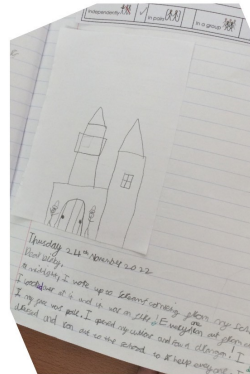 independently
in pairs
in a group
Thursday 24th November 2022
Dear diary,
At midnight, I woke up to screams coming from my
I looked out at it and it was on fire! Everything out
I my pet I opened my window and saw a dragon! I
dressed and ran out to the school to help everyone. I